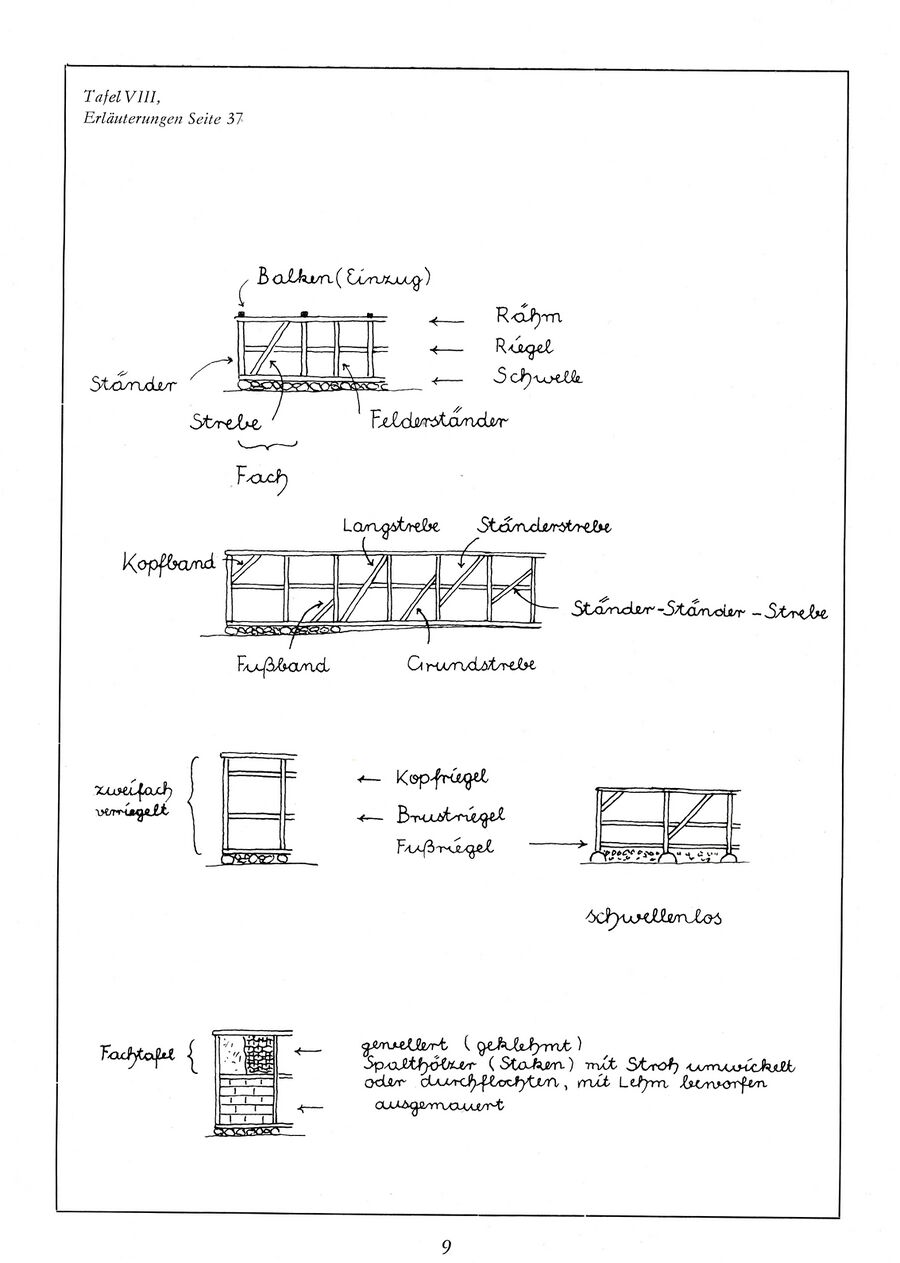 Tafel VIII,
Erläuterungen Seite 37
Balken (Einzug)
Rähm
Riegel
Schwelle
Ständer
Strebe
Felderständer
Fach
Langstrebe
Ständerstrebe
Kopfband
Ständer-Ständer-Strebe
Fußband
Grundstrebe
zweifach
verriegelt
Kopfriegel
Brustriegel
Fußriegel
schwellenlos
Fachtafel
gewellert (geklehmt)
Spalthölzer (Staken) mit Stroh umwickelt
oder durchflochten, mit Lehm beworfen
ausgemauert
9